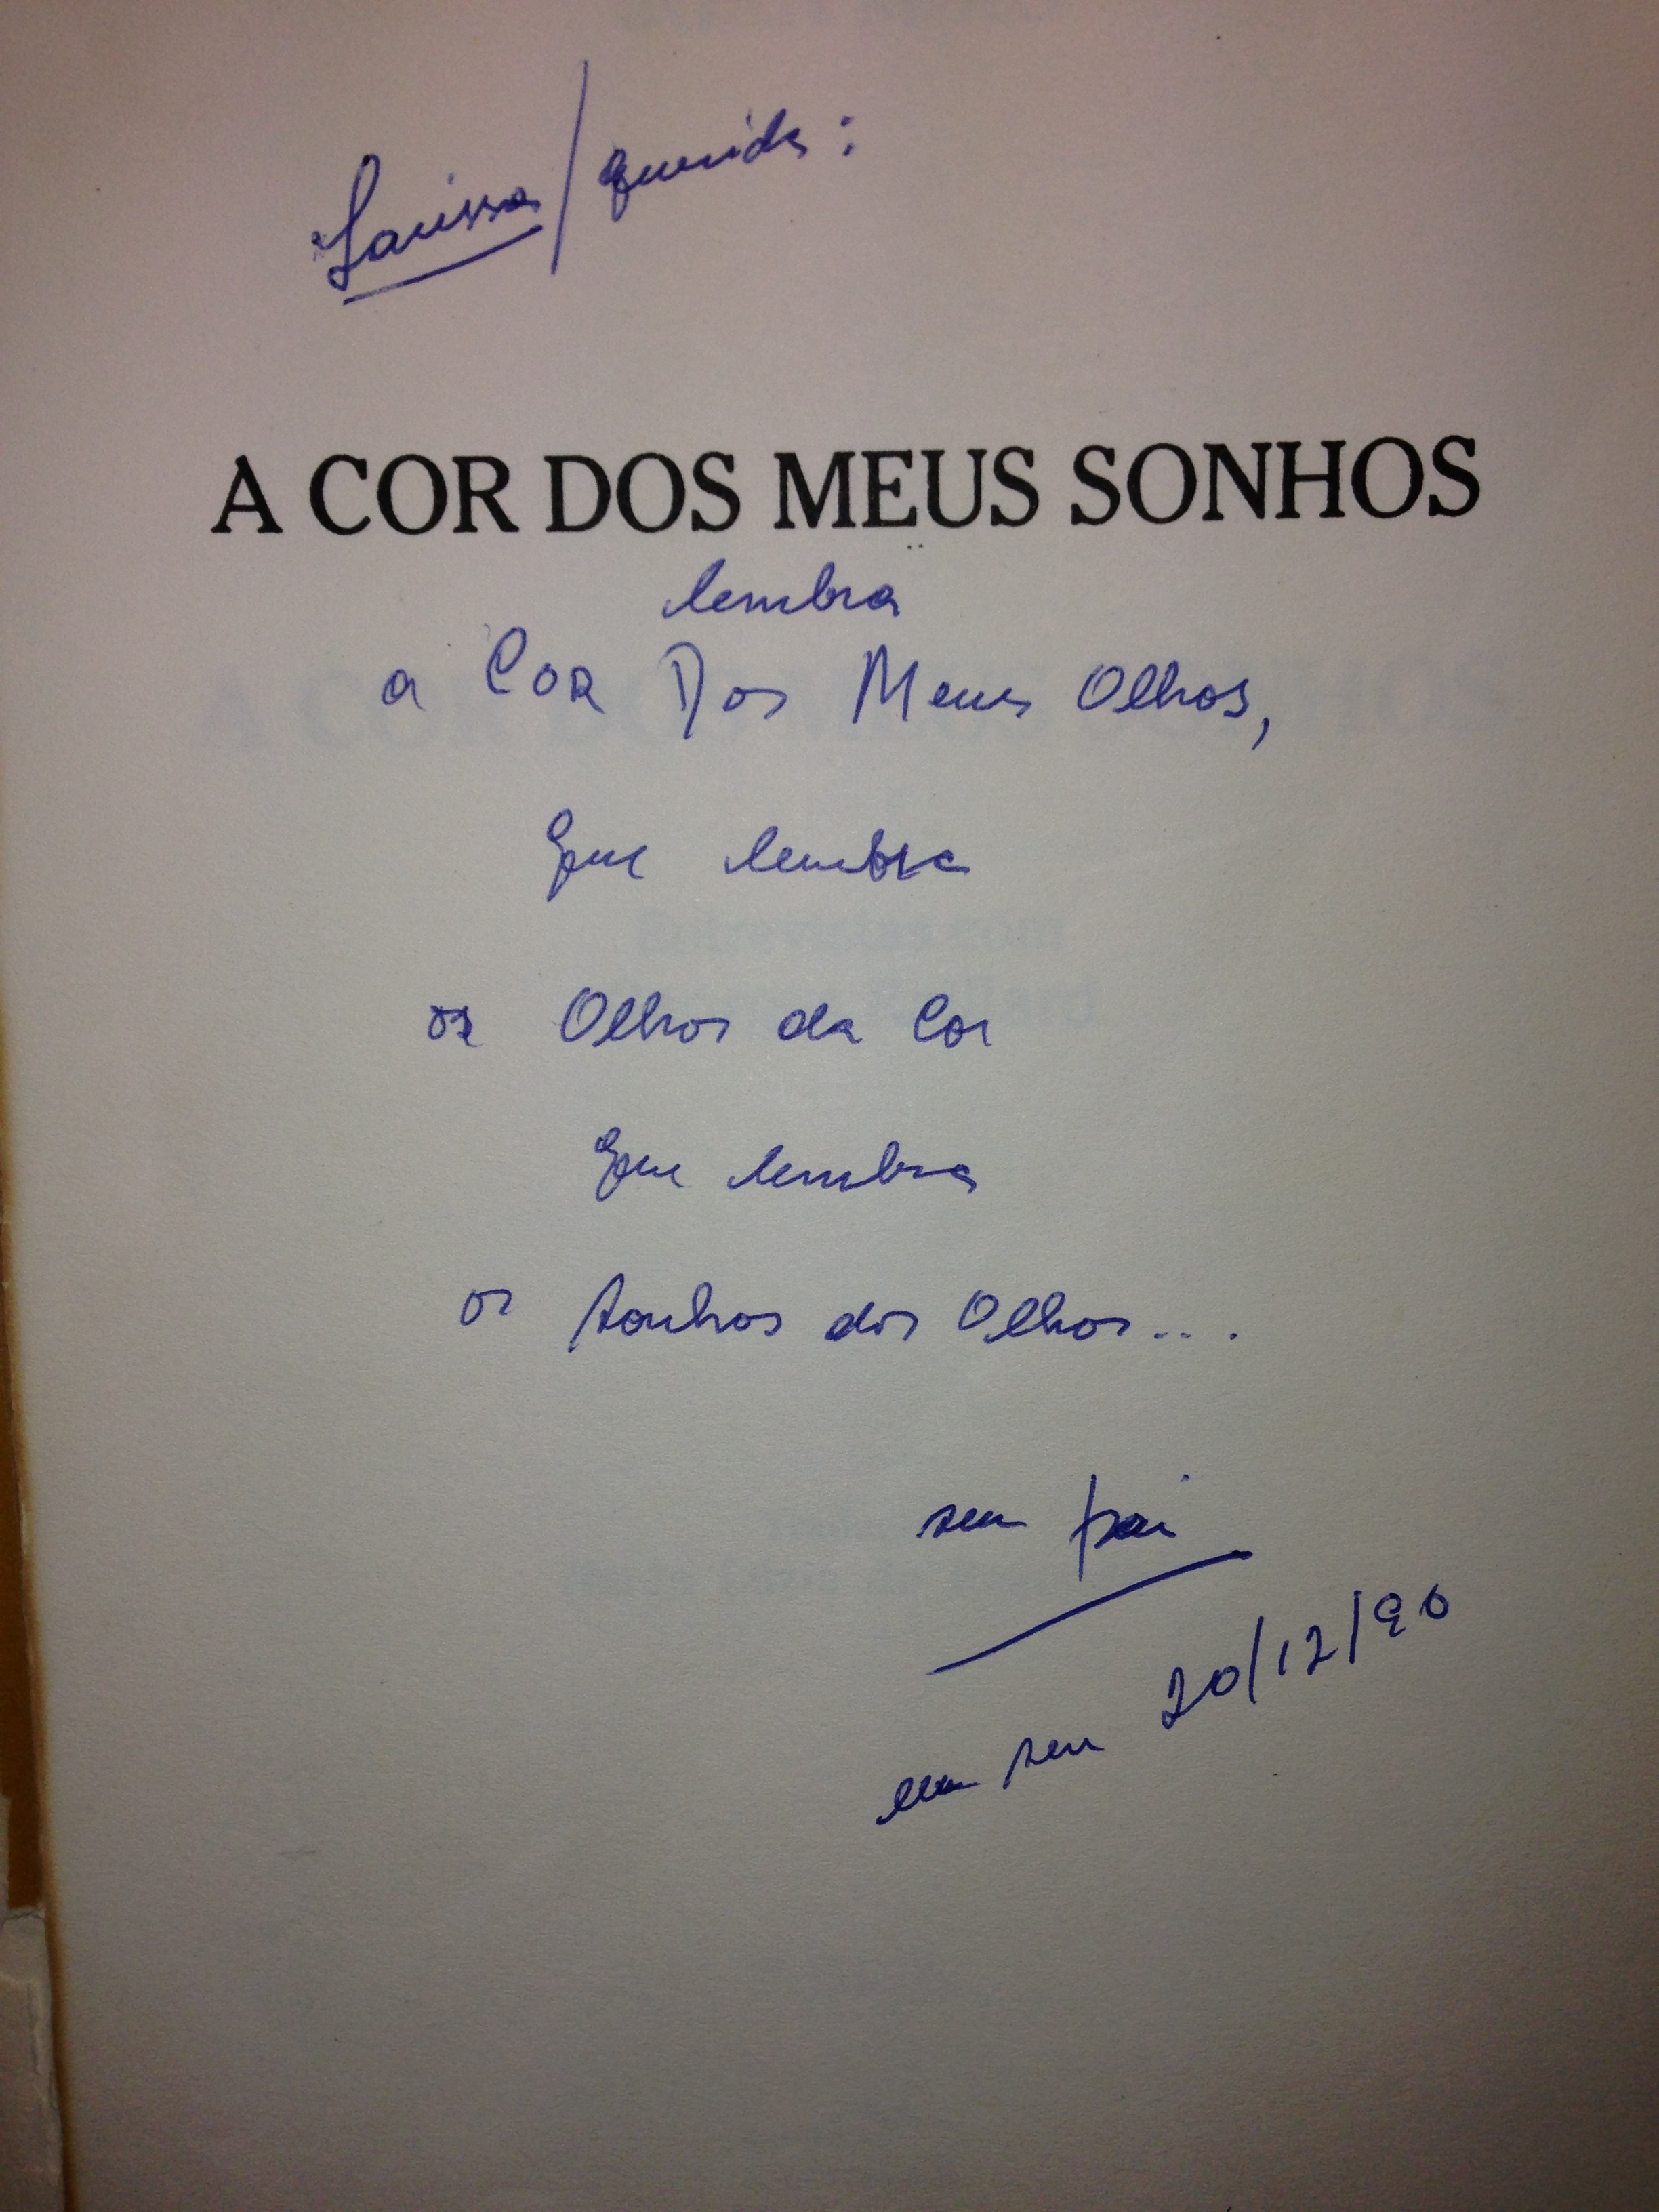 Larissa/querida:
A COR DOS MEUS SONHOS
lembra
a Cor Dos Meus Olhos,
que lembra
os Olhos da Cor
que lembra
os Sonhos dos Olhos....
seu pai
em seu 20/12/90